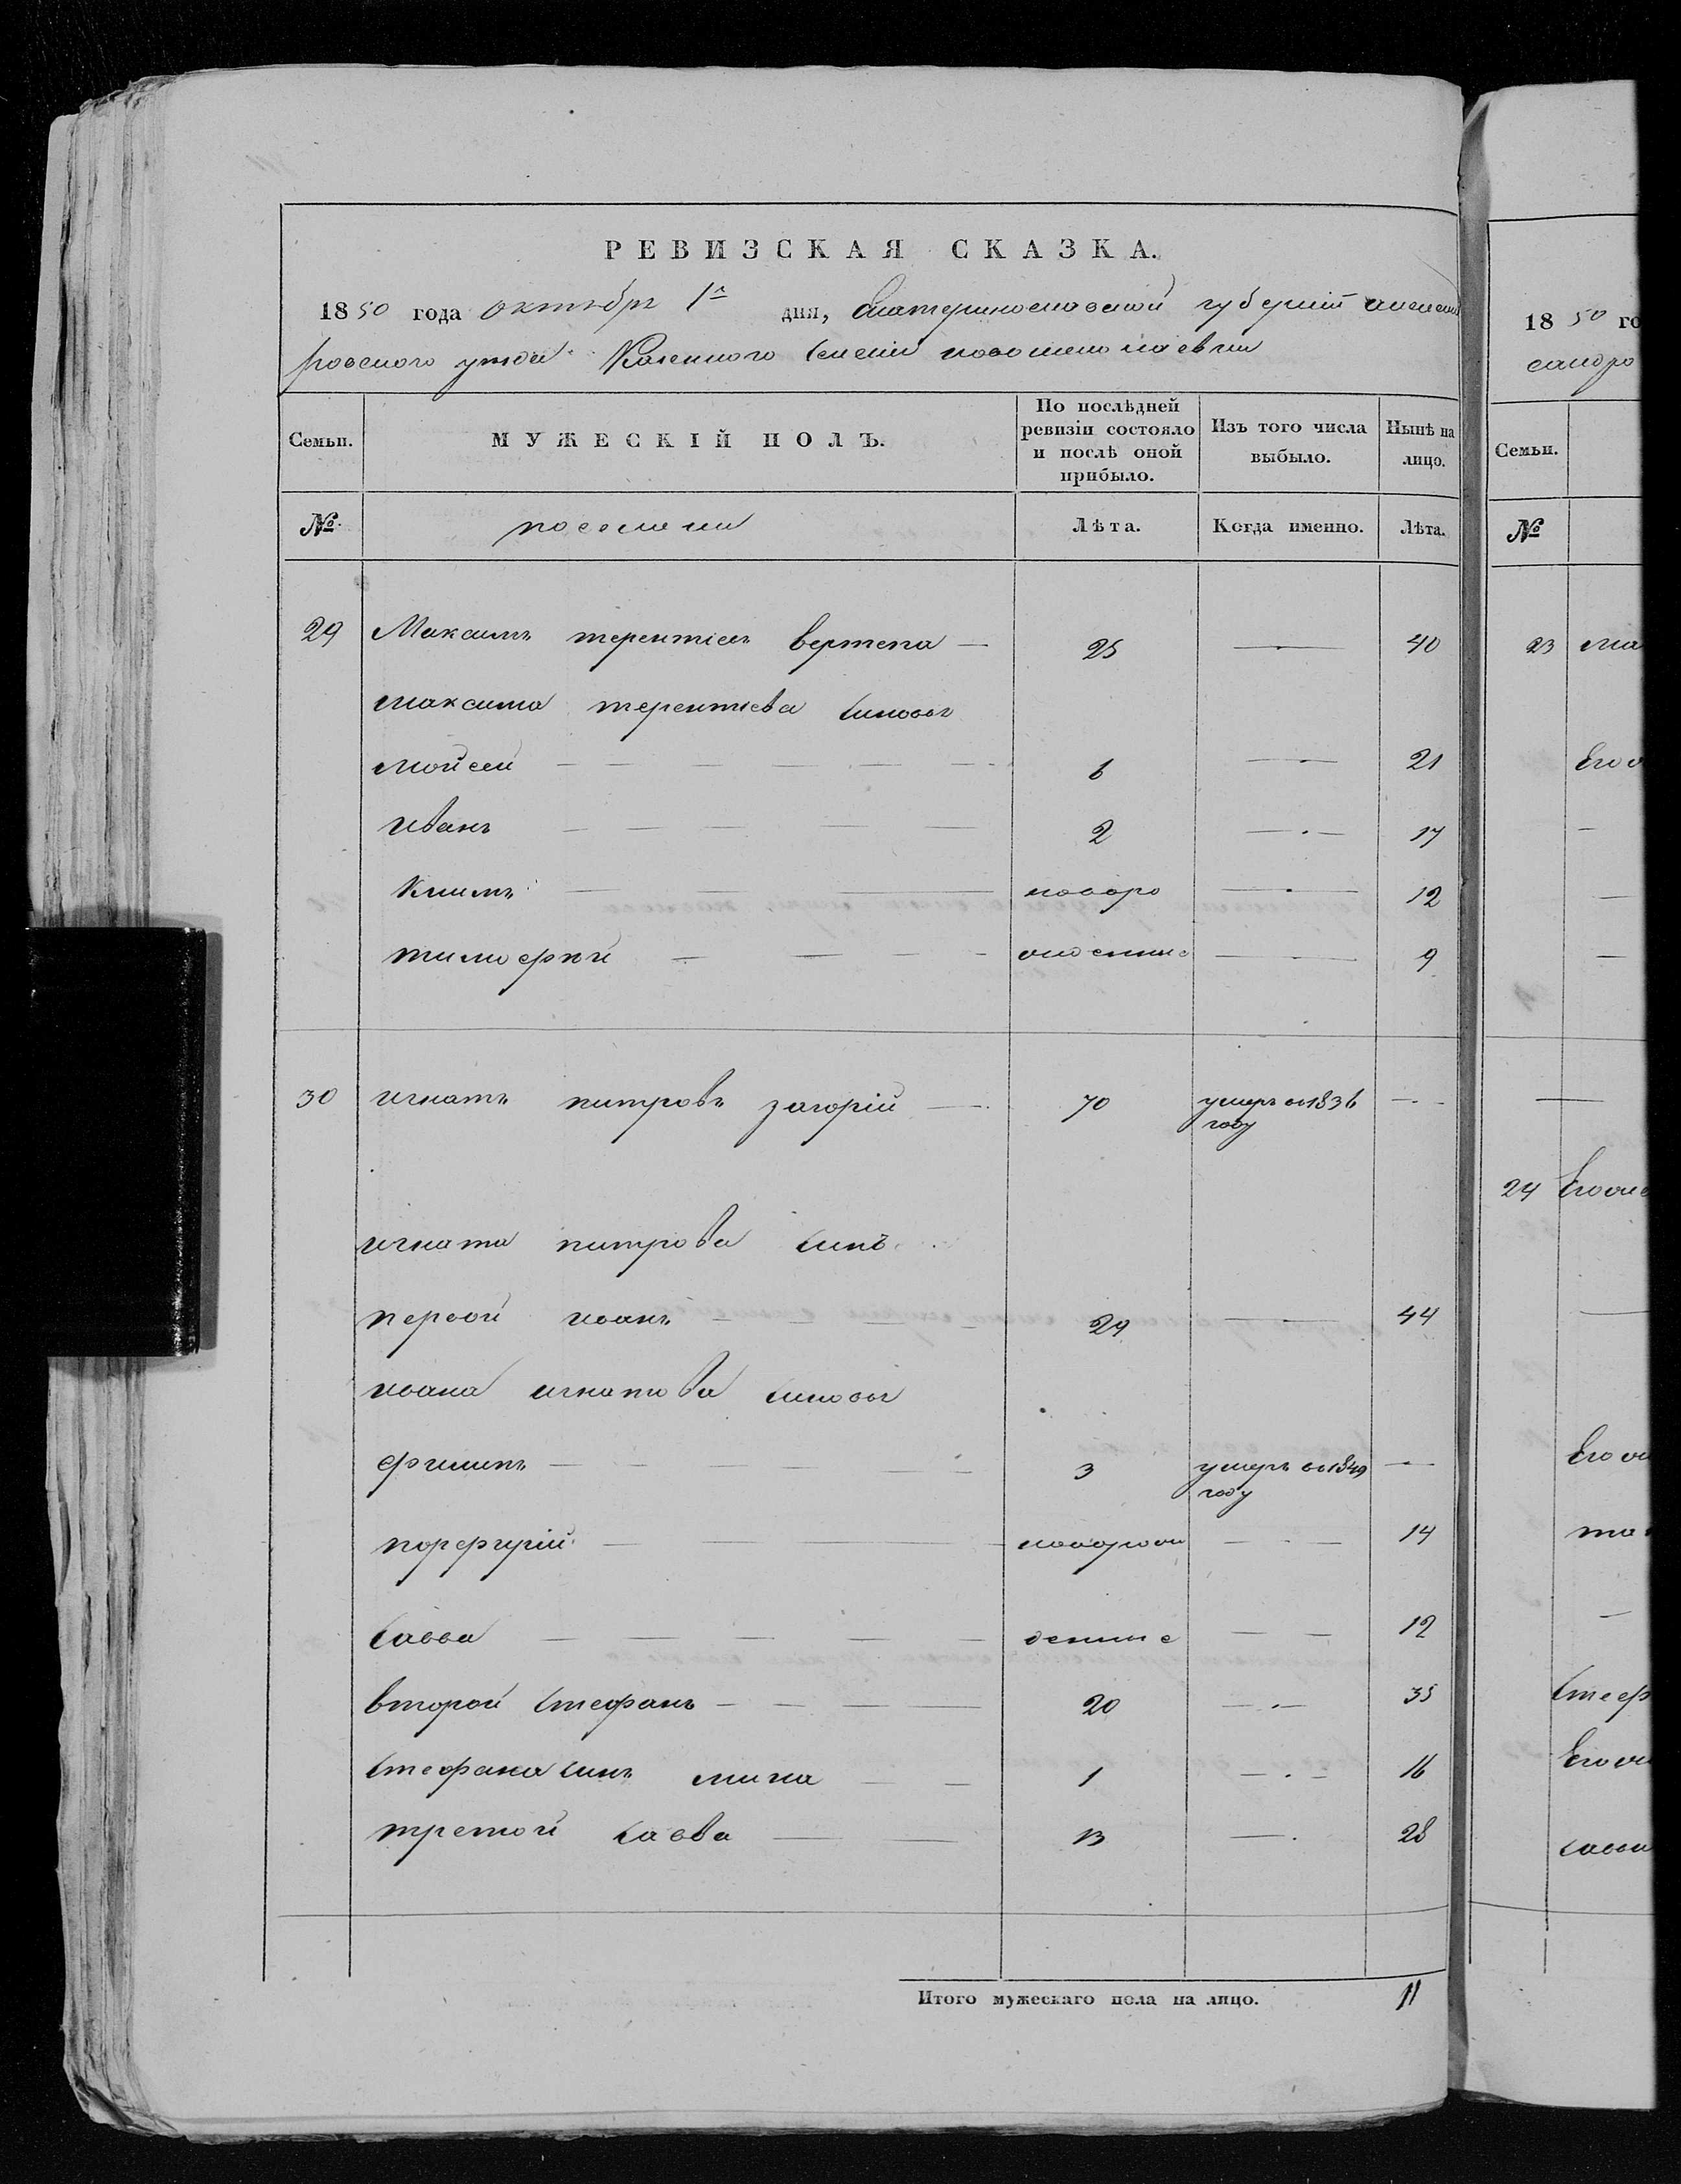 РЕВИЗСКАЯ СКАЗКА.
1850 года октября 1го дня, Екатеринославской губерніи александ
ровского уезда Казенного Селенія новониколаевки
Семьи. МУЖЕСКІЙ ПОЛЪ. По послѣдней ревизіи состояло и послѣ оной прибыло. Изъ того числа выбыло. Нынѣ на лицо.
№ поселяни Лѣта. Когда именно. Лѣта.
29 Максимъ терентіевъ вертепа — 25 — 40
максима терентіева синовы
мойсей 6 — 21
иванъ 2 — 17
климъ новоро — 12
тимофѣй 9
30 игнатъ питровъ загорій 70 умеръ въ 1836 году —
игната питрова синъ
первой иванъ 29 — 44
ивана игнатова синовы
филипъ 3 умеръ въ 1849 году —
порфирій — 14
савва денние — 12
второй стефанъ 20 — 35
стефана синъ мина 1 — 16
третой савва 13 — 28
Итого мужескаго пола на лицо. 11
1850 го
сандро
Семьи.
№
23 ма
Его
24 Его
Его
Стеф
Его
савва